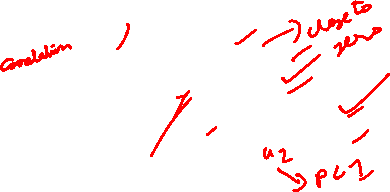 Correlation
close to
zero
u2
PC2